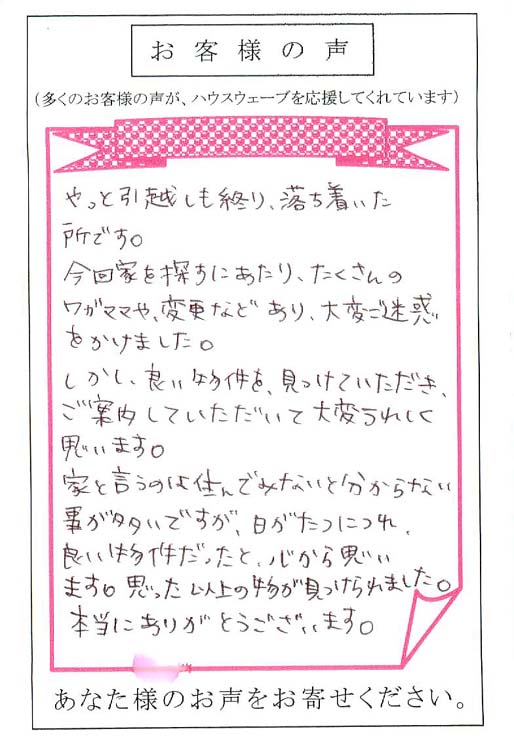 お客様の声
（多くのお客様の声が、ハウスウェーブを応援してくれています）
やっと引越しも終り、落ち着いた
所です。
今回家を探すにあたり、たくさんの
ワガママや、変更など あり、大変ご迷惑
をかけました。
しかし、良い物件を、見つけていただき、
ご案内していただいて大変うれしく
思います。
家と言うのは住んでみないと分からない
事が多いですが、日がたつにつれ、
良い物件だったと、心から思い
ます。思った以上の物が見つけられました。
本当にありがとうございます。
あなた様のお声をお寄せください。